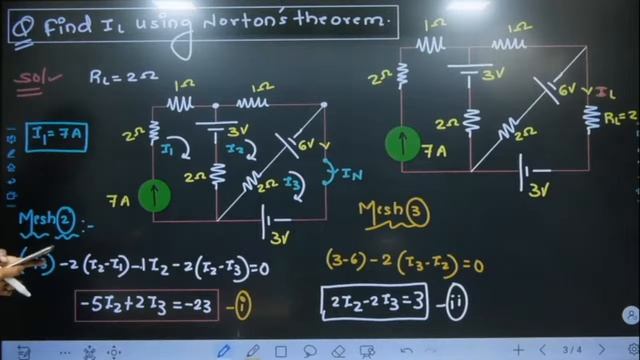 Q Find IL using Norton's theorem.
Solⁿ
RL = 2Ω
I1 = 7A
1Ω
1Ω
2Ω
3V
6V
I1
I2
2Ω
2Ω
I3
IN
7A
3V
1Ω
1Ω
2Ω
3V
6V
IL
2Ω
2Ω
RL=2
7A
3V
Mesh 2 :-
-2(I2-I1)-1I2-2(I2-I3)=0
-5I2+2I3=-23 -(i)
Mesh 3
(3-6)-2(I3-I2)=0
2I2-2I3=3 -(ii)
3/4